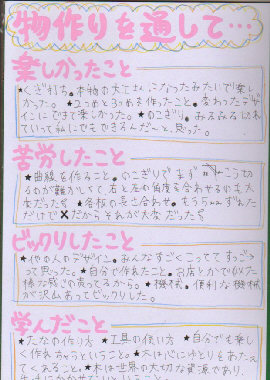 物作りを通して…
楽しかったこと
★くぎ打ち。本物の大工さんになったみたいで楽し
かった。★2つめと3つめを作ったこと。変わったデザ
インにできて楽しかった。★のこぎり。
いって私にもできるんだ〜と思った。
苦労したこと
★曲線を作ること。のこぎりで
るのが難かしくて右と左の角度を合わせるのも大
変だった ★各板の長さ合わせ。もう5mmずれた
だけで✖だからそれが大変だった
ビックリしたこと
★他の人のデザイン。みんなすごくこっててすっごーい
って思った。★自分で作れたこと。お店とかで
様な感じの売ってるから。★機械。便利な機械
が沢山あってビックリした。
学んだこと
★たなの作り方 ★工具の使い方 ★自分でも楽し
く作れちゃうということ。★木は心にゆとりをあたえ
てくれること。★木は世界の大切な資源であり、